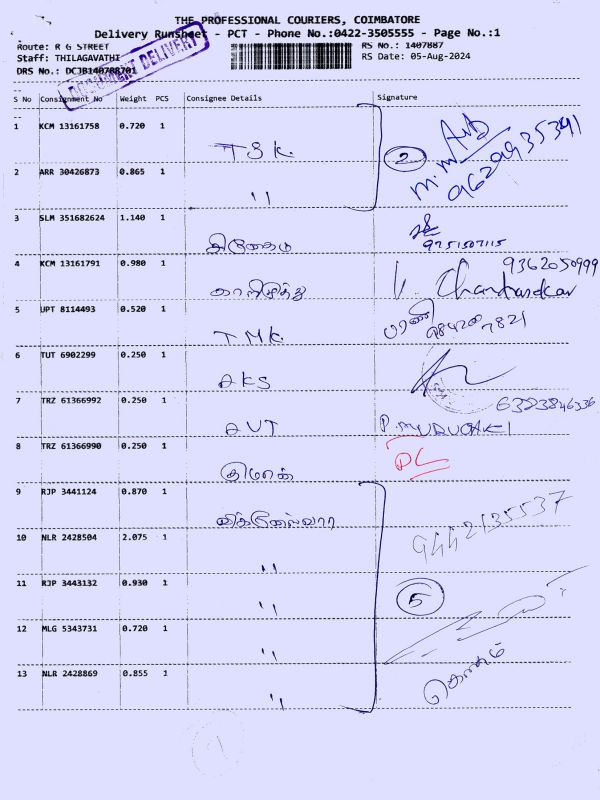 THE PROFESSIONAL COURIERS, COIMBATORE
Delivery Runsheet - PCT - Phone No.:0422-3505555 - Page No.:1
Route: R G STREET
RS No.: 1407887
Staff: THILAGAVATHI
RS Date: 05-Aug-2024
DRS No.:
DOCUMENT DELIVERY
S No Consignment No Weight PCS Consignee Details Signature
1 KCM 13161758 0.720 1
T S K. 2
9629935341
2 ARR 30426873 0.865 1
"
3 SLM 351682624 1.140 1
9751507115
4 KCM 13161791 0.980 1
9362050999
காளிமுத்து
5 UPT 8114493 0.520 1
பரணி
T M K.
6 TUT 6902299 0.250 1
AKS
7 TRZ 61366992 0.250 1
AVT
8 TRZ 61366990 0.250 1
9 RJP 3441124 0.870 1
விக்னேஷ்வரா
9442135537
10 NLR 2428504 2.075 1
"
11 RJP 3443132 0.930 1
" 5
12 MLG 5343731 0.720 1
"
13 NLR 2428869 0.855 1
"